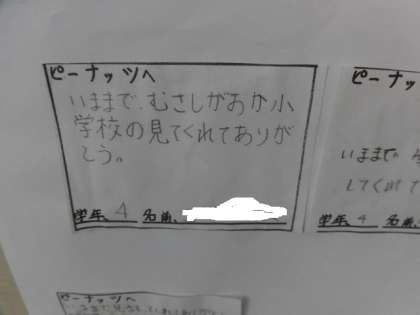 ピーナッツへ
いままで、むさしがおか小
学校の見てくれてありが
とう。
学年 4 名前
ピーナッ
いままで
してくれて
学年 4 名前
ピーナッツへ